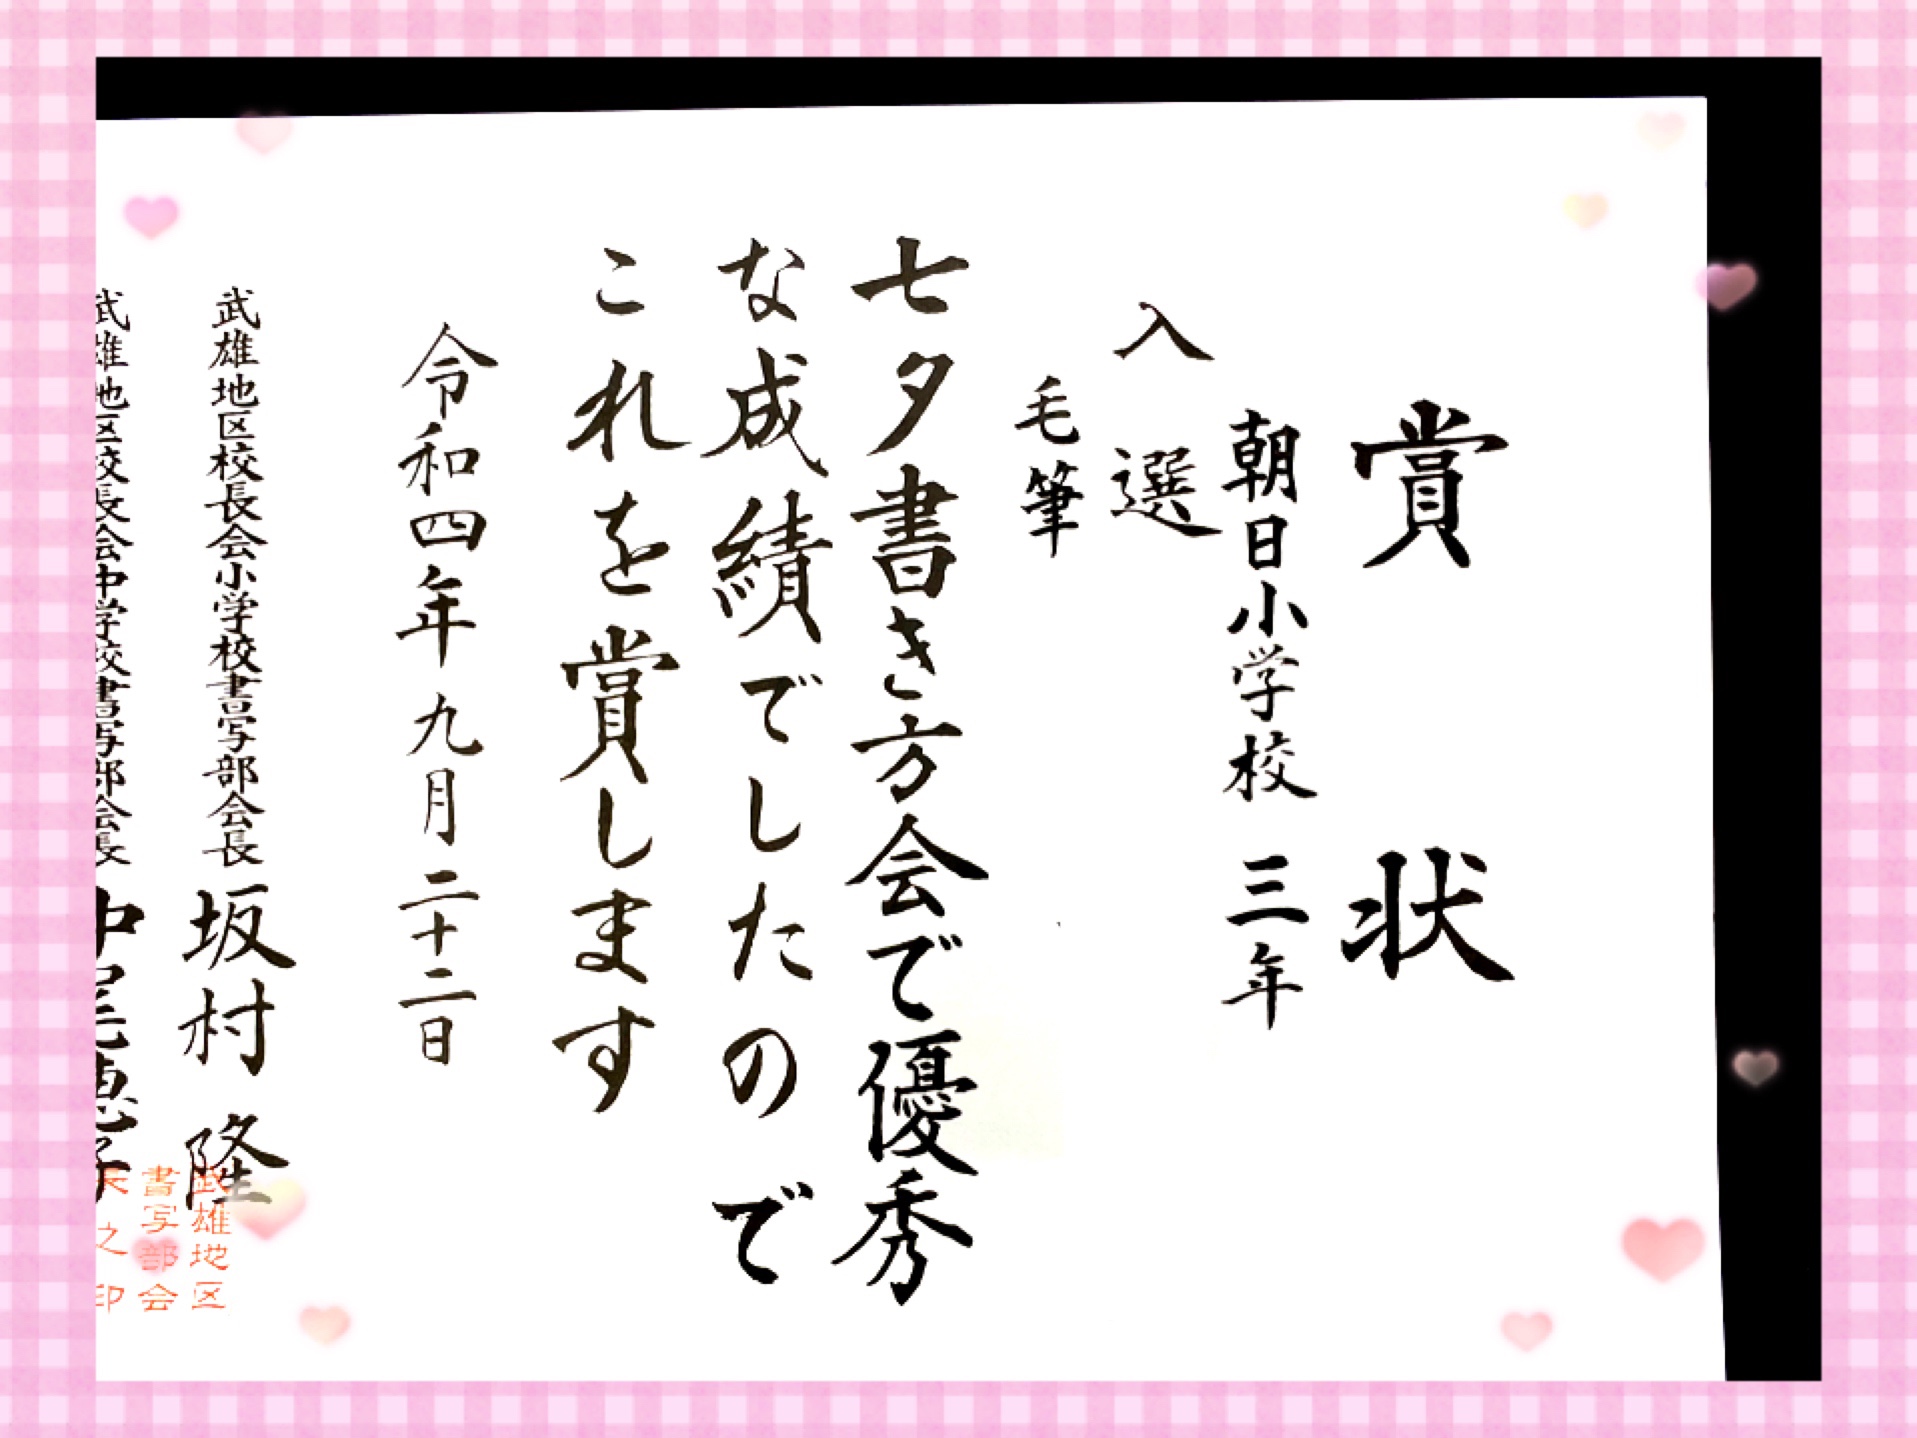 賞状
朝日小学校 三年
入選
毛筆
七夕書き方会で優秀
な成績でしたので
これを賞します
令和四年九月二十二日
武雄地区校長会小学校書写部会長 坂村 隆
武雄地区校長会中学校書写部会長 中尾恵子
武雄地区
書写部会
長之印